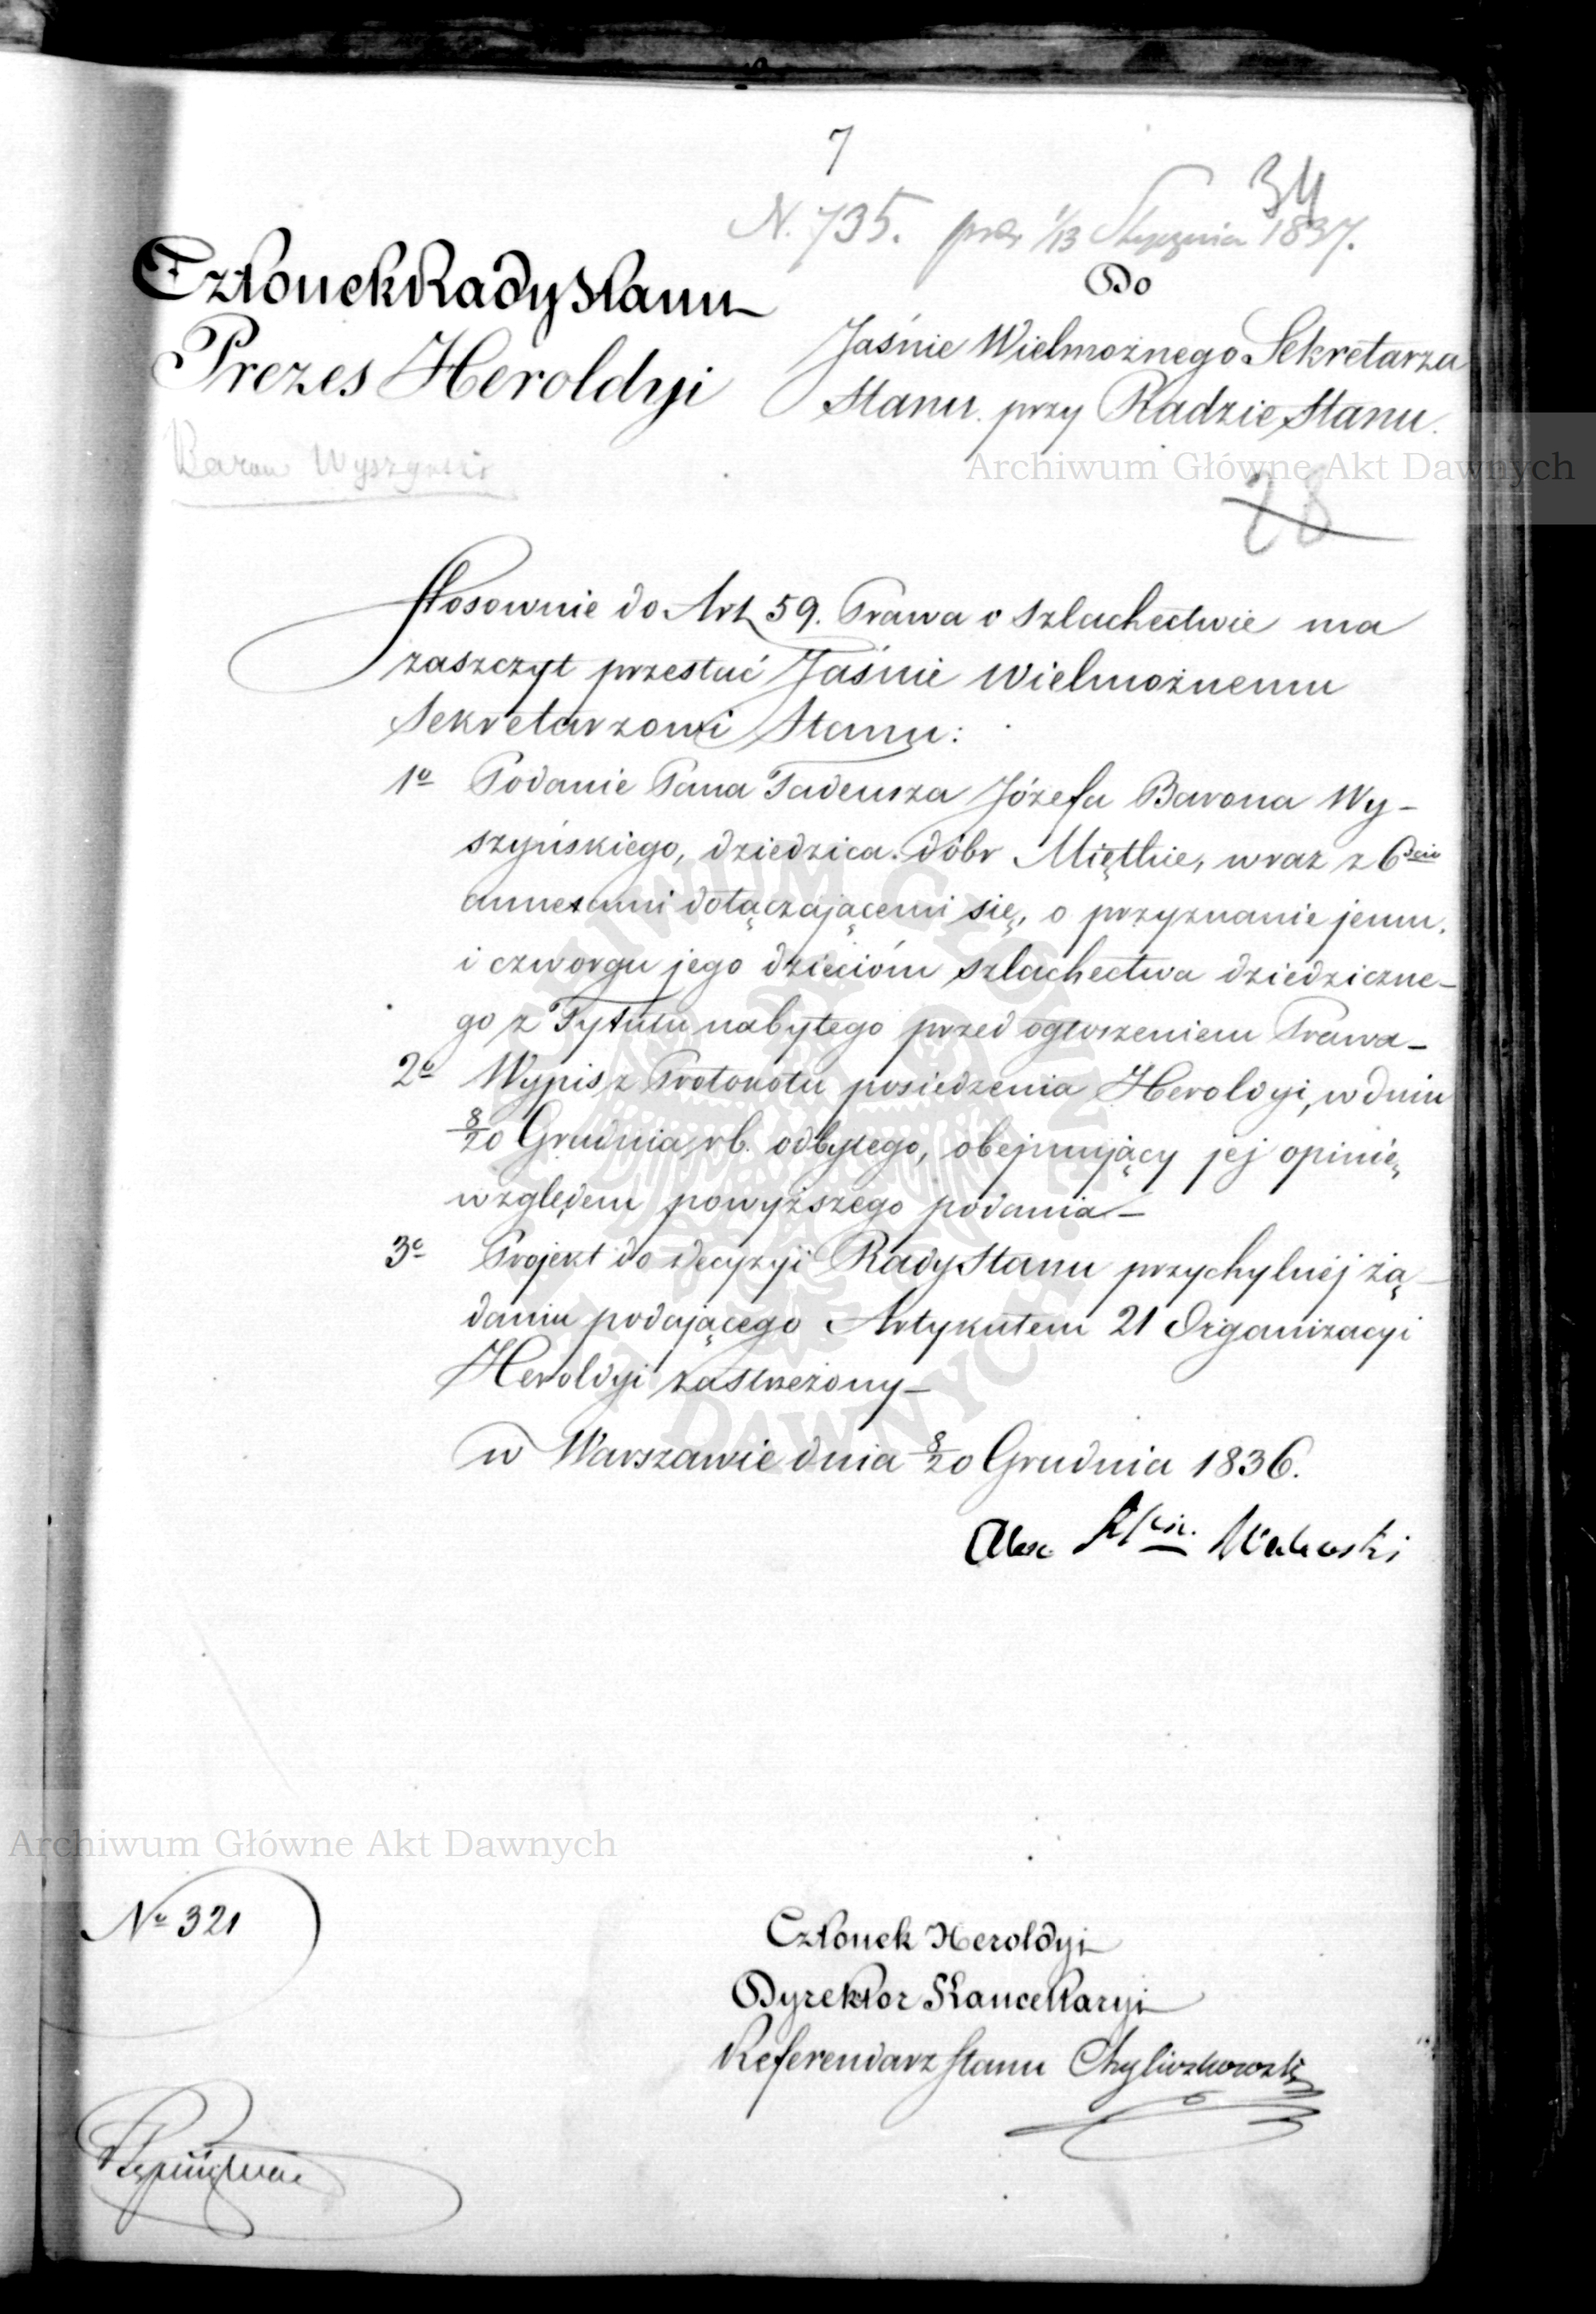 7
34
N. 735. prez 1/13 Stycznia 1837.
Członek Rady Stanu
Prezes Heroldyi
Do
Jaśnie Wielmożnego Sekretarza
Stanu przy Radzie Stanu.
Baron Wyszyński
Archiwum Główne Akt Dawnych
28
Stosownie do Art 59. Prawa o szlachectwie ma
zaszczyt przesłać Jaśnie Wielmożnemu
Sekretarzowi Stanu:
1o Podanie Pana Tadeusza Józefa Barona Wy-
szyńskiego, dziedzica dóbr Miętkie, wraz z 6cio
annexami dołączającemi się, o przyznanie jemu
i czworgu jego dzieciom szlachectwa dziedziczne-
go z Tytułu nabytego przed ogłoszeniem Prawa-
2o Wypis z Protokołu posiedzenia Heroldyi, w dniu
8/20 Grudnia rb. odbytego, obejmujący jej opinię
względem powyższego podania-
3o Projekt do decyzyi Rady Stanu przychylnéj żą-
daniu podającego Artykułem 21 Organizacyi
Heroldyi zastrzeżony-
w Warszawie dnia 8/20 Grudnia 1836.
Alex. Walewski
Archiwum Główne Akt Dawnych
No 321
Członek Heroldyi
Dyrektor Kancellaryi
Referendarz Stanu Chyliczkowski